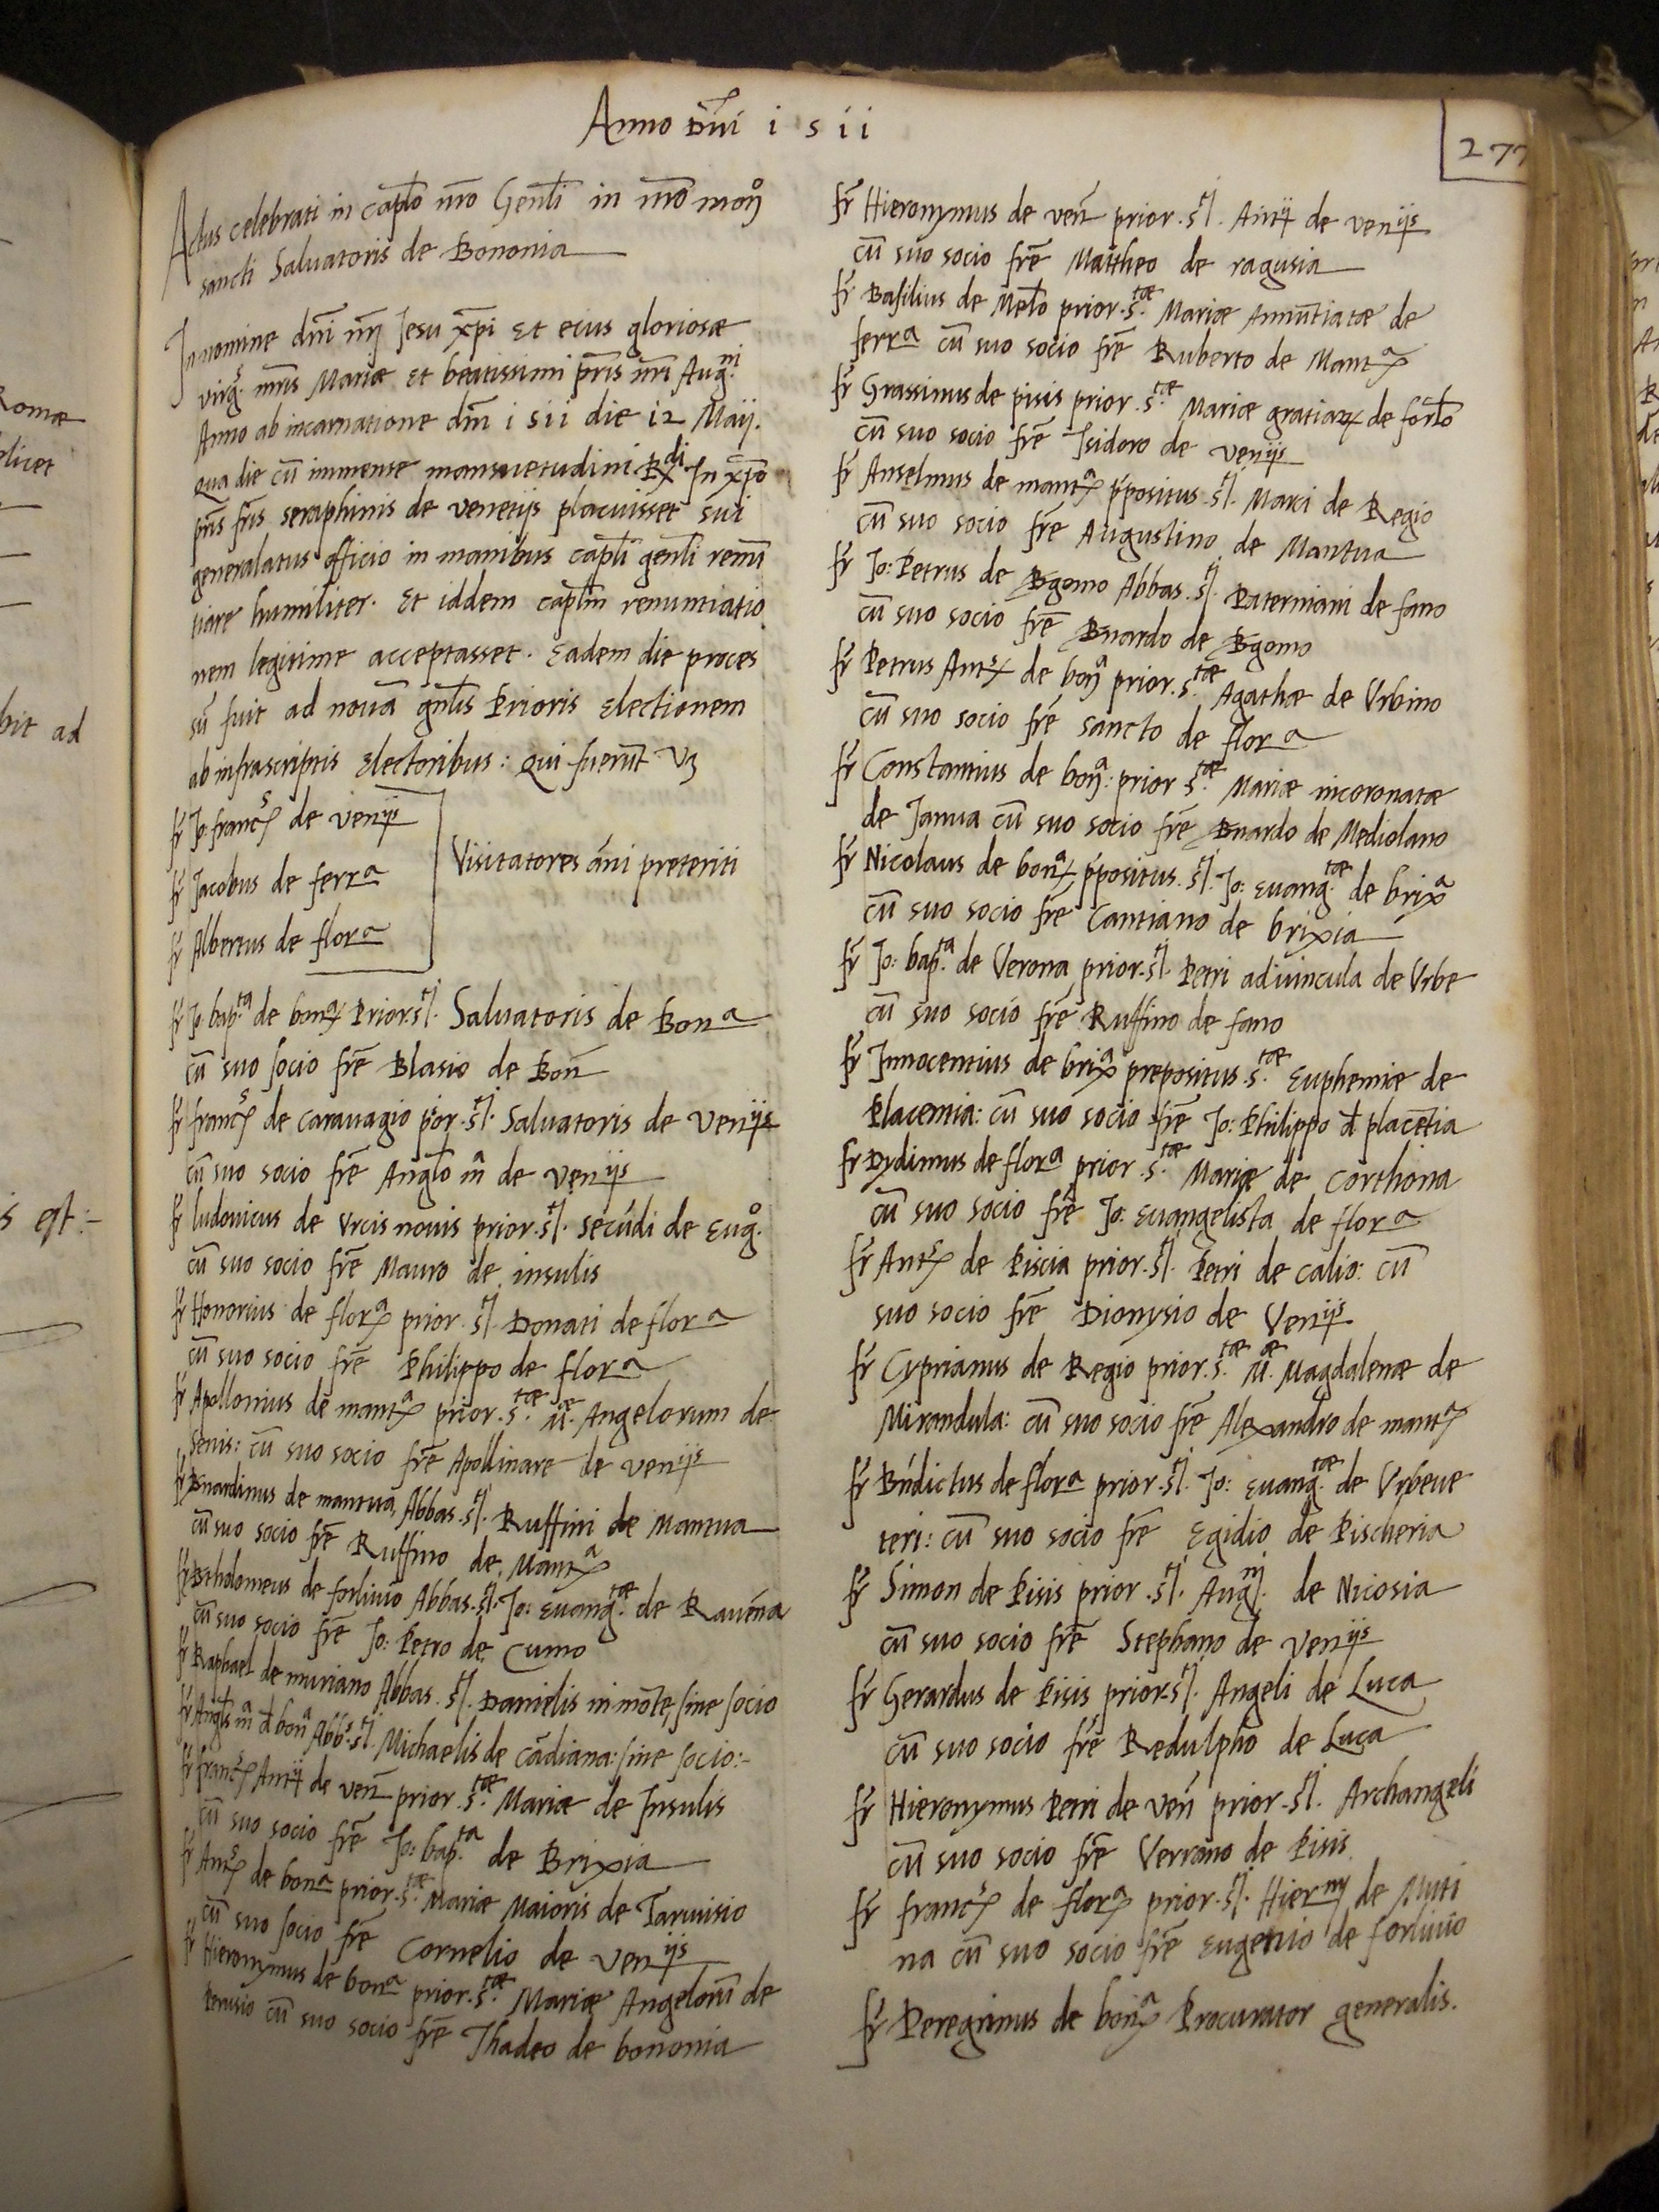 Anno Dñi i s i i
277
Actus celebrati in caplo nro Genli in nro moñ
sancti Saluatoris de Bononia
In nomine dñi nrj Jesu xpi Et eius gloriosæ
virg. mris Mariæ Et beatissimi pris nri Aug.ni
Anno ab incarnatione dñi i s i i die i2 Maij.
qua die cũ immense mansuetudini Rdi In xpo
pris fris seraphinis de venetijs placuisset sui
generalatus officio in manibus capli genli renũ
tiare humiliter. Et iddem caplm renuntiatio
nem legitime acceptasset. Eadem die proces
sũ fuit ad nouã gnlis Prioris Electionem
ab infrascriptis Electoribus: qui fuerũt vz
fr Jo: francs de venijs
fr Jacobus de ferra
fr Albertus de flora
Visitatores ãni preteriti
fr Jo: bap.ta de bona Prior .sti. Saluatoris de Bona
cũ suo socio fre Blasio de Boñ
fr francs de carauagio pior .sti. Saluatoris de venijs
cũ suo socio fre Anglo mã de venijs
fr ludouicus de vrcis nouis prior .sti. secũdi de Eug.o
cũ suo socio fre Mauro de insulis
fr Honorius de flora prior .sti. Donati de flora
cũ suo socio fre Philippo de flora
fr Apollonius de manta prior .s.tæ M.æ Angelorum de
senis: cũ suo socio fre Apollinare de venijs
fr Bnardinus de mantua, Abbas .sti. Ruffini de Mantua
cũ suo socio fre Ruffino de Manta
fr Btholomeus de forliuio Abbas .sti. Jo: euang.tæ de Rauẽna
cũ suo socio fre Jo: Petro de Cumo
fr Raphael de muriano Abbas .sti. Danielis in mõte, sine socio
fr Angls mã d bonã Abbs .sti. Michaelis de cãdiana: sine socio:-
fr francs Antij de veñ prior .s.tæ Mariæ de Insulis
cũ suo socio fre Jo: bap.ta de Brixia
fr Ants de bona prior .s.tæ Mariæ Maioris de Taruisio
cũ suo socio fre Cornelio de venijs
fr Hieronymus de bona prior .s.tæ Mariæ Angelorũ de
Perusio cũ suo socio fre Thadeo de bononia
fr Hieronymus de veñ prior .sti. Antij de venijs
cũ suo socio fre Mattheo de ragusia
fr Basilius de Melo prior .s.tæ Mariæ Annũtiatæ de
ferra cũ suo socio fre Ruberto de Manta
fr Grassinus de pisis prior .s.tæ Mariæ gratiarꝝ de forlo
cũ suo socio fre Isidoro de venijs
fr Anselmus de manta ppositus .sti. Marci de Regio
cũ suo socio fre Augustino de Mantua
fr Jo: Petrus de Bgomo Abbas .sti. Paterniani de fano
cũ suo socio fre Bnardo de Bgomo
fr Petrus Ants de boña prior .s.tæ Agathæ de Vrbino
cũ suo socio fre sancto de flora
fr Constantius de boña: prior s.tæ Mariæ incoronatæ
de Janua cũ suo socio fre Bnardo de Mediolano
fr Nicolaus de bona ppositus .sti. Jo: euang.tæ de brixa
cũ suo socio fre Cantiano de brixia
fr Jo: bap.ta de Verona prior .sti. Petri aduincula de Vrbe
cũ suo socio fre Ruffino de fano
fr Innocentius de brixa prepositus .s.tæ Euphemiæ de
Placentia: cũ suo socio fre Jo: Philippo d placẽtia
fr Dydimus de flora prior .s.tæ Mariæ de corthona
cũ suo socio fre Jo: Euangelista de flora
fr Ants de Piscia prior .sti. Petri de calio: cũ
suo socio fre Dionysio de Venijs
fr Cyprianus de Regio prior .s.tæ M.æ Magdalenæ de
Mirandula: cũ suo socio fre Alexandro de manta
fr Bñdictus de flora prior .sti. Jo: euang.tæ de Vrbeue
teri: cũ suo socio fre Egidio de Pischeria
fr Simon de Pisis prior .sti. Aug.nj de Nicosia
cũ suo socio fre Stephano de venijs
fr Gerardus de Pisis prior .sti. Angeli de Luca
cũ suo socio fre Redulpho de Luca
fr Hieronymus Petri de veñ prior .sti. Archangeli
cũ suo socio fre Verrano de Pisis
fr francs de flora prior .sti. Hier.ny de Muti
na cũ suo socio fre Eugenio de forliuio
fr Peregrinus de bona Procurator generalis.